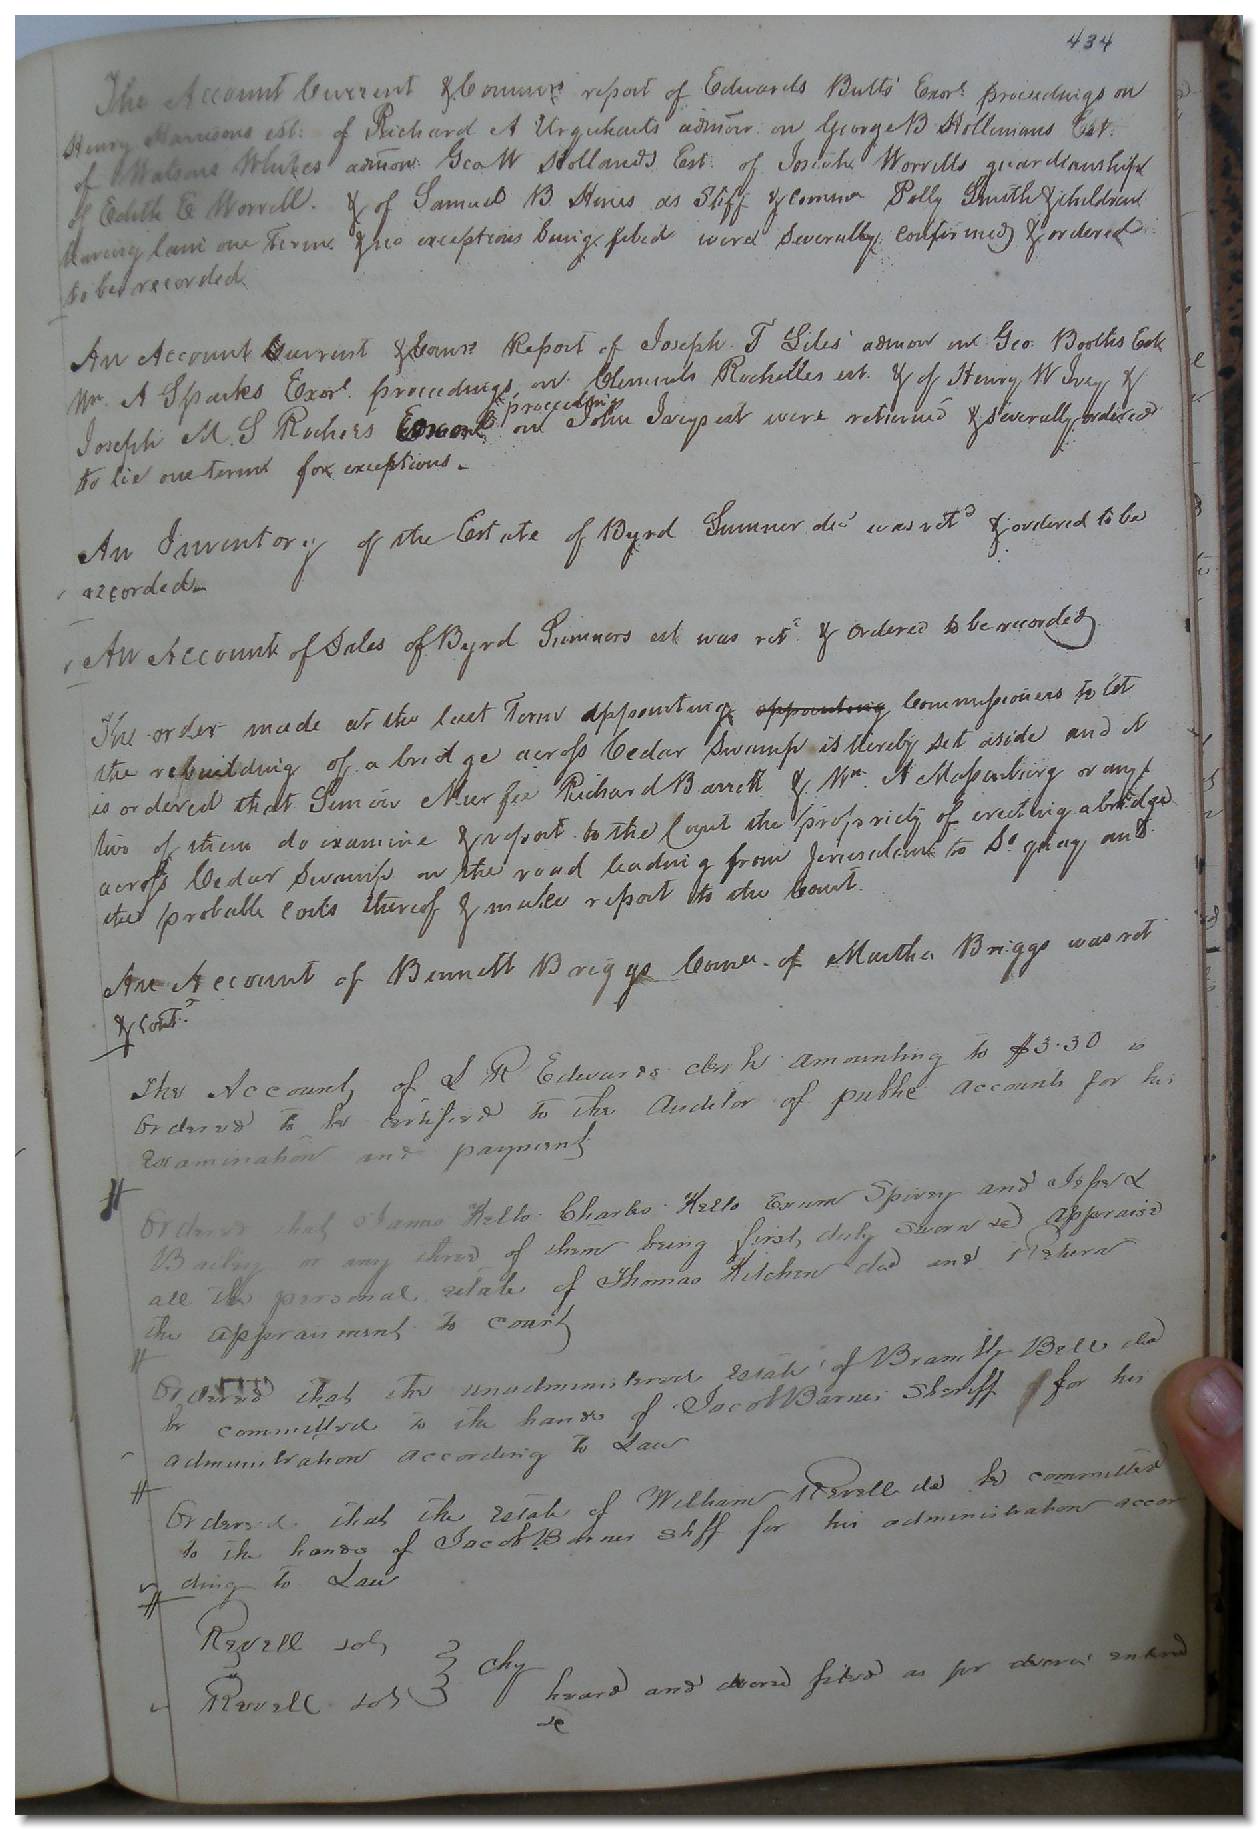 434
The Account Current & Commrs report of Edwards Butts' Exor. proceedings on
Henry Harrisons est: of Richard A Urquharts admor. on George B Hollemans Est.
of Watson Whites admon. Geo W Hollands Est. of Josiah Worrells guardianship
of Edith E Worrell. & of Samuel B Hines as Shff & comme Polly Smith & children
having lain one Term & no exceptions being filed were severally confirmed & ordered
to be recorded
An Account Current & Comrs Report of Joseph T Giles' admon on Geo. Booths Est.
Wm. A Sparks Exor. proceedings on Clements Rochelles est. & of Henry W Ivey &
Joseph M. S Rochers proceedings on John Iveys est were returned & severally ordered
to lie one term for exceptions.
An Inventory of the Estate of Byrd Sumner decd was retd & ordered to be
recorded
An Account of Sales of Byrd Sumners est was retd & ordered to be recorded
The order made at the last Term appointing appointing Commissioners to let
the rebuilding of a bridge across Cedar Swamp is hereby set aside and it
is ordered that Simon Murfee Richard Barrett & Wm. A Massenburg or any
two of them do examine & report to the Court the propriety of erecting a bridge
across Cedar Swamp on the road leading from Jerusalem to So quay and
the probable costs thereof & make report to the Court.
An Account of Bennett Briggs Comee. of Martha Briggs was ret
& contd.
The Account of L R Edwards clerk amounting to $3.30 is
Ordered to be certified to the Auditor of public accounts for his
examination and payment
Ordered that James Kello Charles Kello Exum Spivey and
Bailey or any three of them being first duly sworn do appraise
all the personal estate of Thomas Kitchen decd and Return
the appraisment to court
Ordered that the unadministered estate of Brambly Bell decd
be committed to the hands of Jacob Barnes Sheriff for his
administration according to Law
Ordered that the estate of William Revell decd be committed
to the hands of Jacob Barnes Shff for his administration accor
ding to Law
Revell
Revell } Chy
heard and decree filed as per decree entered